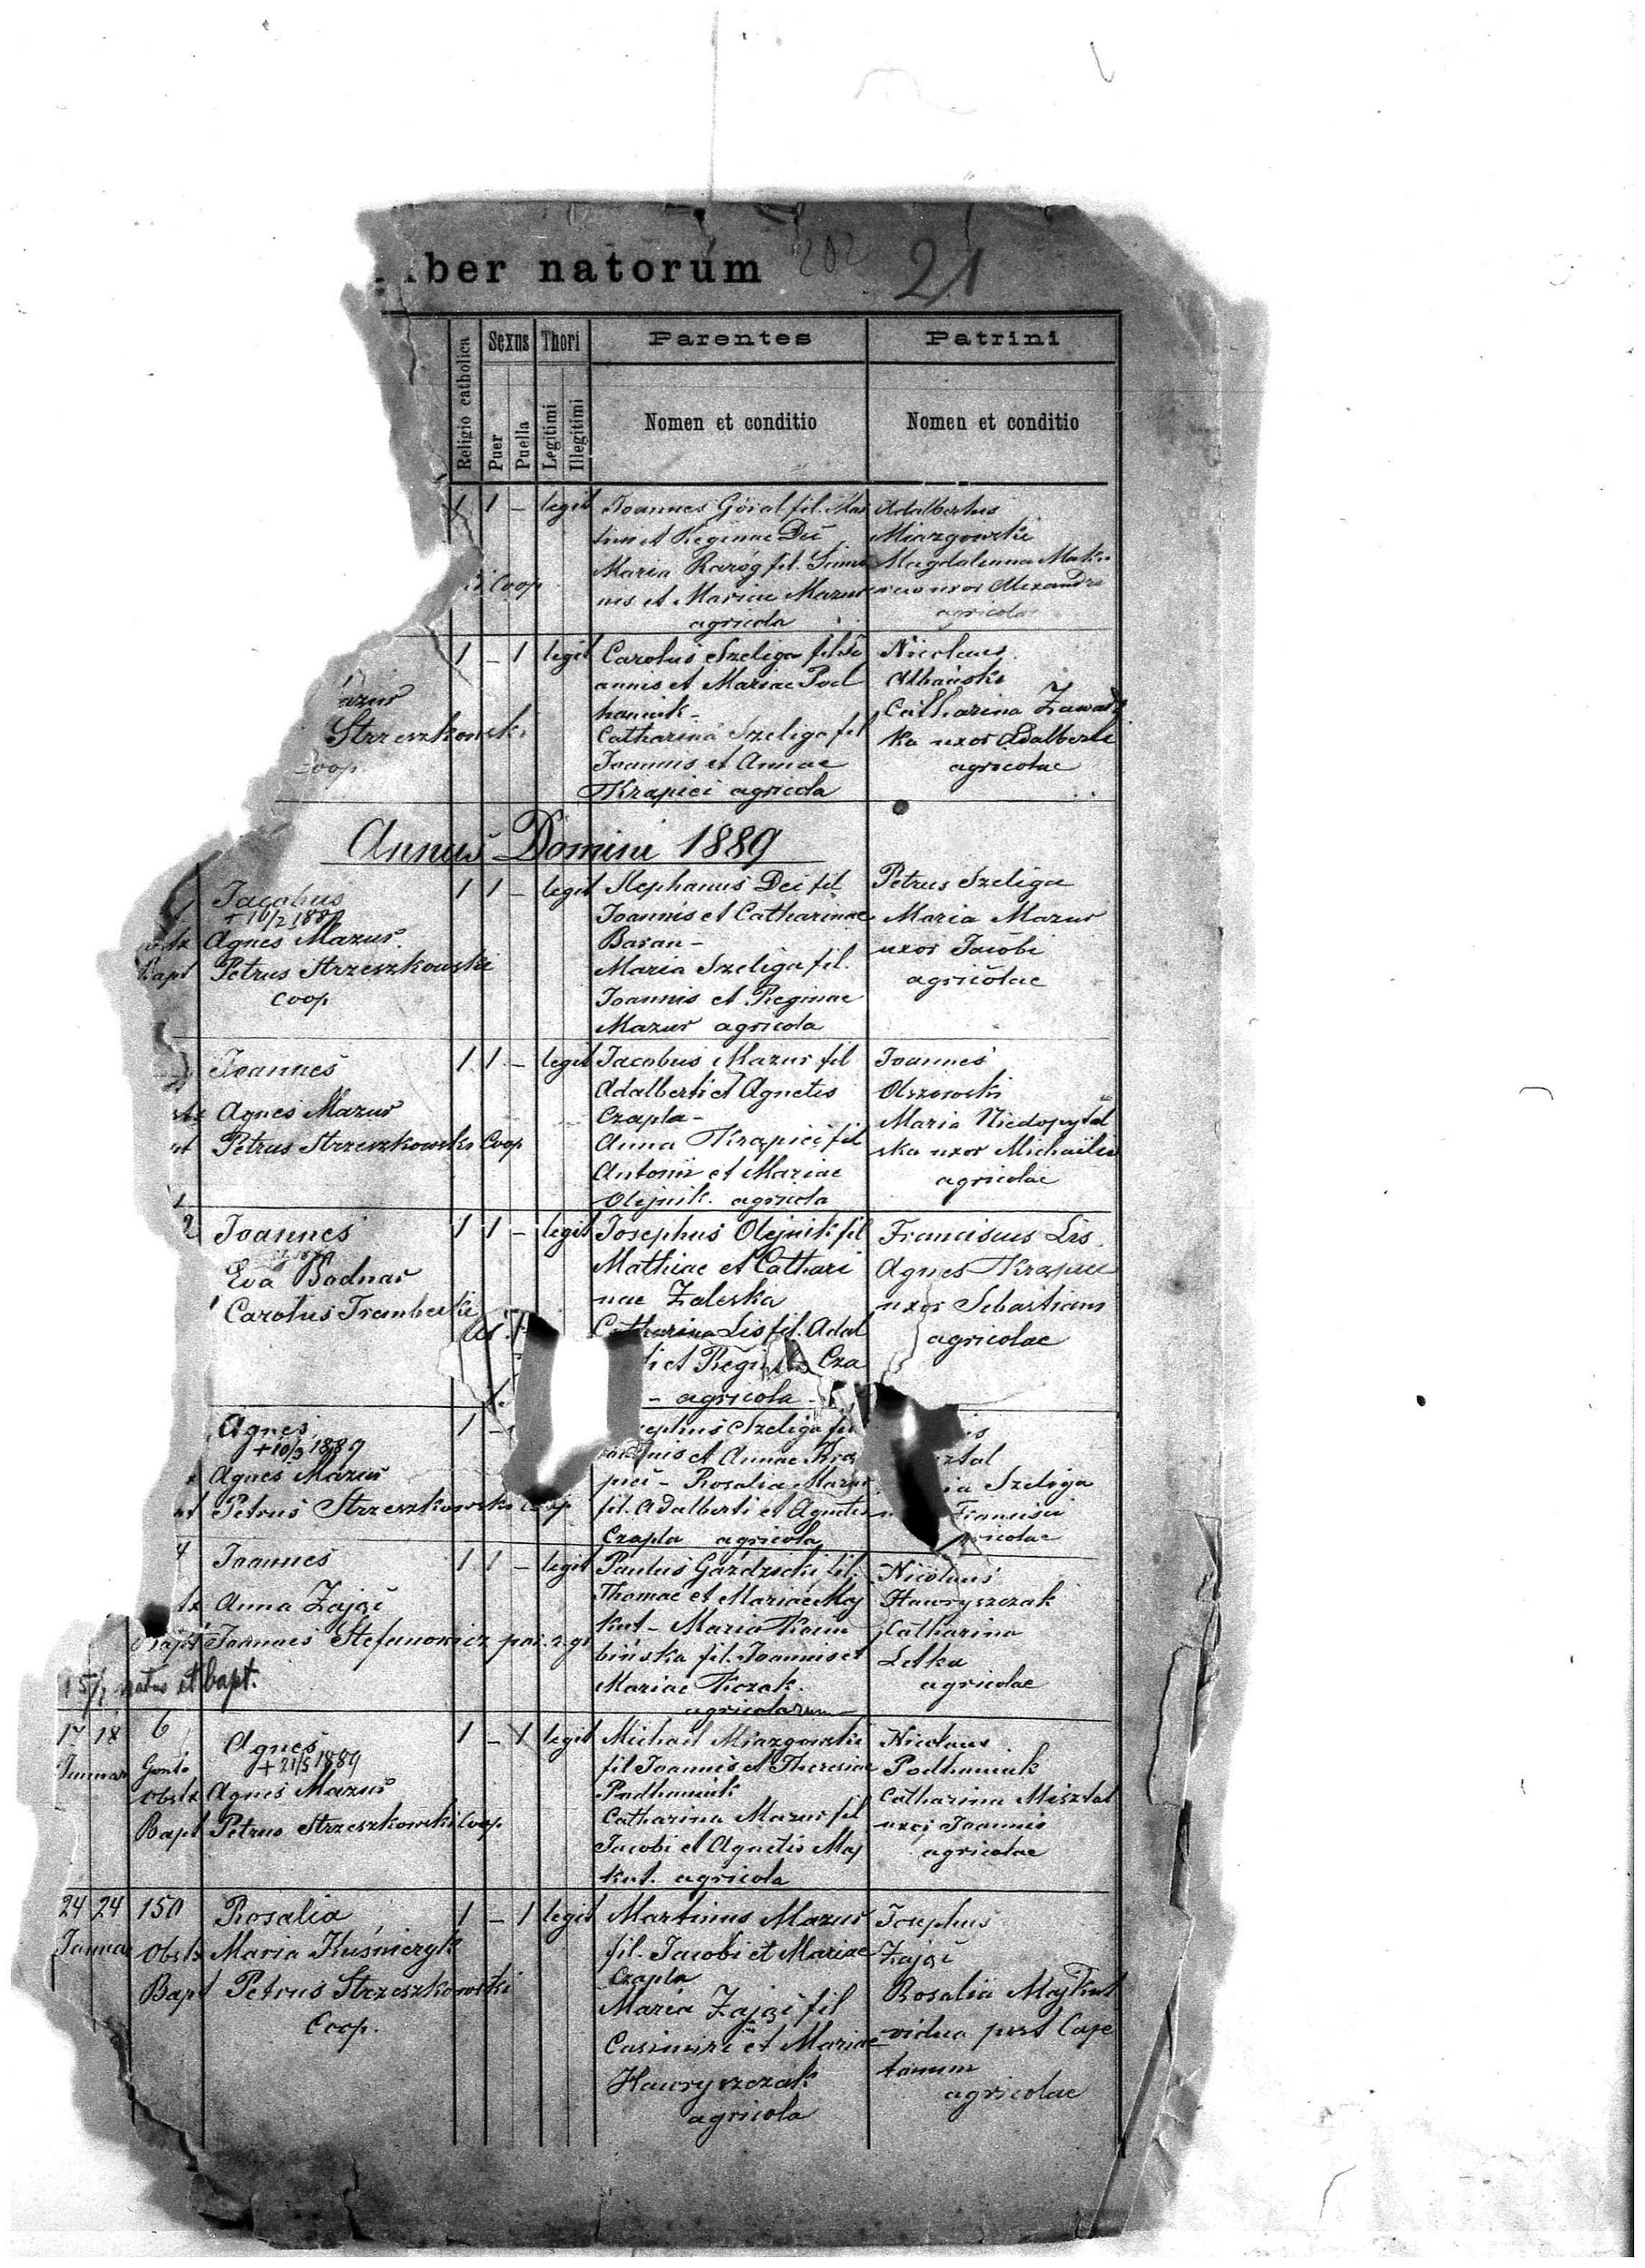 iber natorum
202
21
Religio catholica
Sexus
Thori
Parentes
Patrini
Puer
Puella
Legitimi
Illegitimi
Nomen et conditio
Nomen et conditio
1 1 - legit
Joannes Góral fil. Mar
tini et Reginae Dec
Maria Raróg fil. Joan
nis et Mariae Mazur
agricola
Coop
Adalbertus
Miazgowski
Magdalenna
uxor Alexandri
agricolae
azur
Strzeszkowski
Coop.
1 - 1 legit
Carolus Szeliga fil. Jo
annis et Mariae Pod
haniuk -
Catharina Szeliga fil
Joannis et Annae
Krapiec agricola
Nicolaus
Albański
Catharina Zawadz
ka uxor Adalberti
agricolae
Annus Domini 1889
Jacobus
+ 16/2 1889
Agnes Mazur
Bapt Petrus Strzeszkowski
Coop
1 1 - legit
Stephanus Dec fil
Joannis et Catharinae
Baran -
Maria Szeliga fil.
Joannis et Reginae
Mazur agricola
Petrus Szeliga
Maria Mazur
uxor Jacobi
agricolae
Joannes
Agnes Mazur
Petrus Strzeszkowski Coop
1 1 - legit
Jacobus Mazur fil
Adalberti et Agnetis
Czapla -
Anna Krapiec fil
Antonii et Mariae
Olejnik. agricola
Joannes
Olszowski
Maria Niedopytal
ska uxor Michaelis
agricolae
2 Joannes
Eva Bodnar
Carolus Trembecki
1 1 - legit
Josephus Olejnik fil
Mathiae et Cathari
nae Zaleska
Catharina Lis fil. Adal
et Reginae Cza
- agricola -
Franciscus Lis
Agnes Krapiec
uxor Sebastiani
agricolae
Agnes
+ 10/3 1889
Agnes Mazur
Petrus Strzeszkowski Coop
1 -
sephus Szeliga fil
nis et Annae Kra
piec - Rosalia Mazur
fil. Adalberti et Agnetis
Czapla agricola
is
sztal
ia Szeliga
Francisci
agricolae
4 Joannes
Anna Zając
Bapt Joannes Stefanowicz
15/1 natus et bapt.
1 1 - legit
Paulus Gażdzicki fil.
Thomae et Mariae Maj
kut - Maria Kom
bińska fil. Joannis et
Mariae Kczak.
agricolarum
Nicolaus
Hawryszczak
Catharina
Letka
agricolae
17 18 6
Januar
Obstx
Bapt
Agnes
+ 21/5 1889
Agnes Mazur
Petrus Strzeszkowski Coop
1 - 1 legit
Michael Miazgowski
fil Joannis et Theresiae
Podhaniuk
Catharina Mazur fil
Jacobi et Agnetis Maj
kut. agricola
Nicolaus
Podhaniuk
Catharina Misztal
uxor Joannis
agricolae
24 24 150
Januar
Obstx
Bapt
Rosalia
Maria Kuśnierzyk
Petrus Strzeszkowski
Coop.
1 - 1 legit
Martinus Mazur
fil. Jacobi et Mariae
Czapla
Maria Zając fil
Casimiri et Mariae
Hawryszczak
agricola
Josephus
Zając
Rosalia Majkut
vidua post Caje
tanum
agricolae